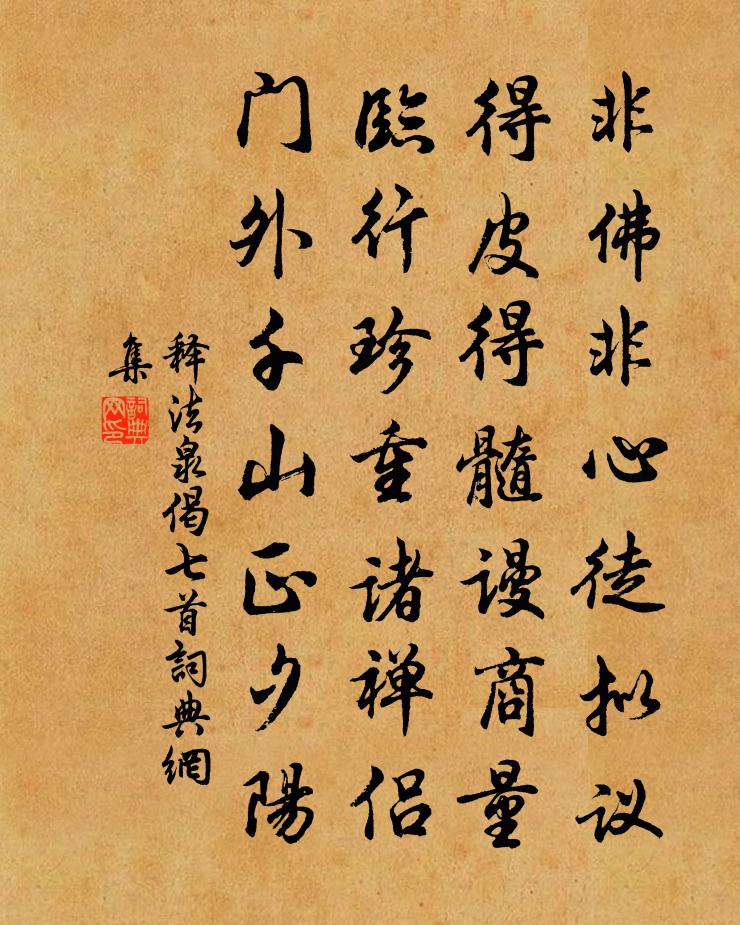 非佛非心徒拟议
得皮得髓谩商量
臨行珍重诸禅侣
门外千山正夕陽
释法泉偈七首詞典網
集
詞典
网印